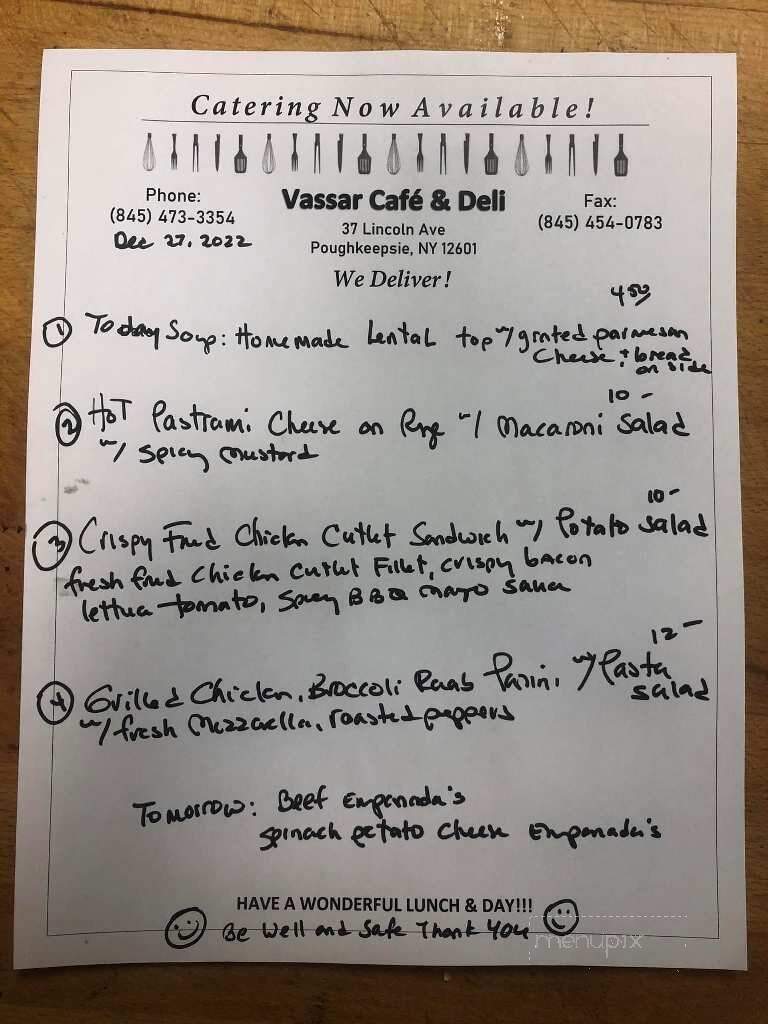 Catering Now Available!
Phone:
(845) 473-3354
Dec 27, 2022
Vassar Café & Deli
37 Lincoln Ave
Poughkeepsie, NY 12601
Fax:
(845) 454-0783
We Deliver!
4 50
1 Today Soup: Homemade Lental top w/ grated parmesan
Cheese + bread
on side
10 -
2 HOT Pastrami Cheese on Rye w/ Macaroni Salad
w/ spicy mustard
10 -
3 Crispy Fried Chicken Cutlet Sandwich w/ Potato Salad
fresh fried Chicken Cutlet Fillet, crispy bacon
lettuce tomato, Spicy BBQ mayo sauce
12 -
4 Grilled Chicken, Broccoli Raab Panini, w/ Pasta
salad
w/ fresh Mozzarella, roasted peppers
Tomorrow: Beef Empanada's
spinach potato cheese Empanada's
HAVE A WONDERFUL LUNCH & DAY!!!
Be Well and Safe Thank You
menupix